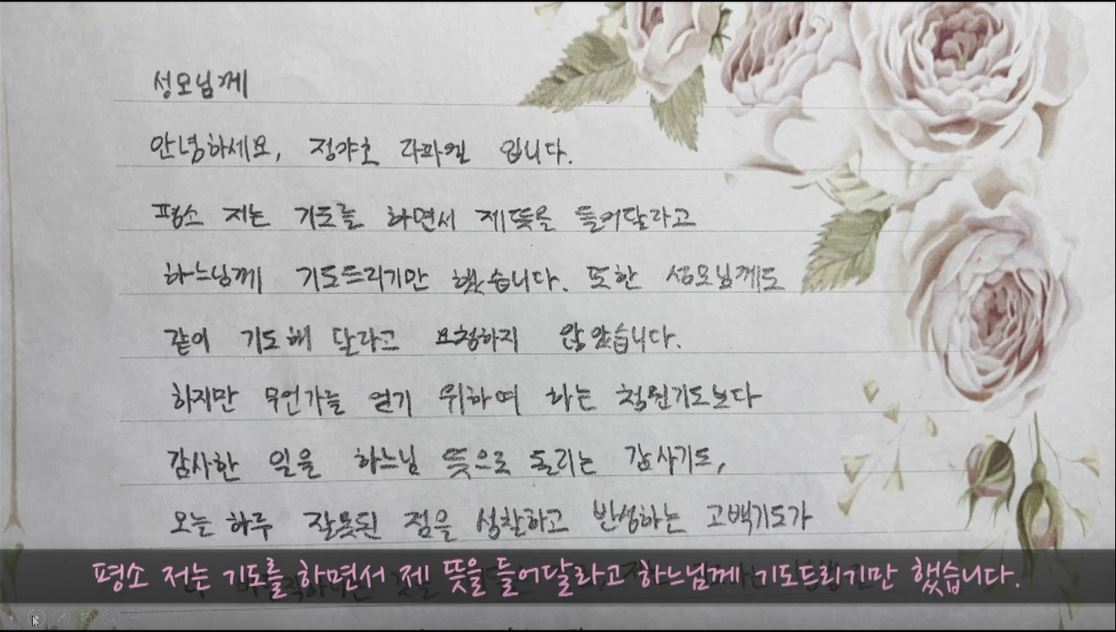 성모님께
안녕하세요, 정갸초 라파엘 입니다.
평소 저는 기도를 하면서 제 뜻을 들어달라고
하느님께 기도드리기만 했습니다. 또한 성모님께도
같이 기도해 달라고 요청하지 않았습니다.
하지만 무언가를 얻기 위하여 하는 청원기도보다
감사한 일을 하느님 뜻으로 돌리는 감사기도,
오늘 하루 잘못된 점을 성찰하고 반성하는 고백기도가
평소 저는 기도를 하면서 제 뜻을 들어달라고 하느님께 기도드리기만 했습니다.